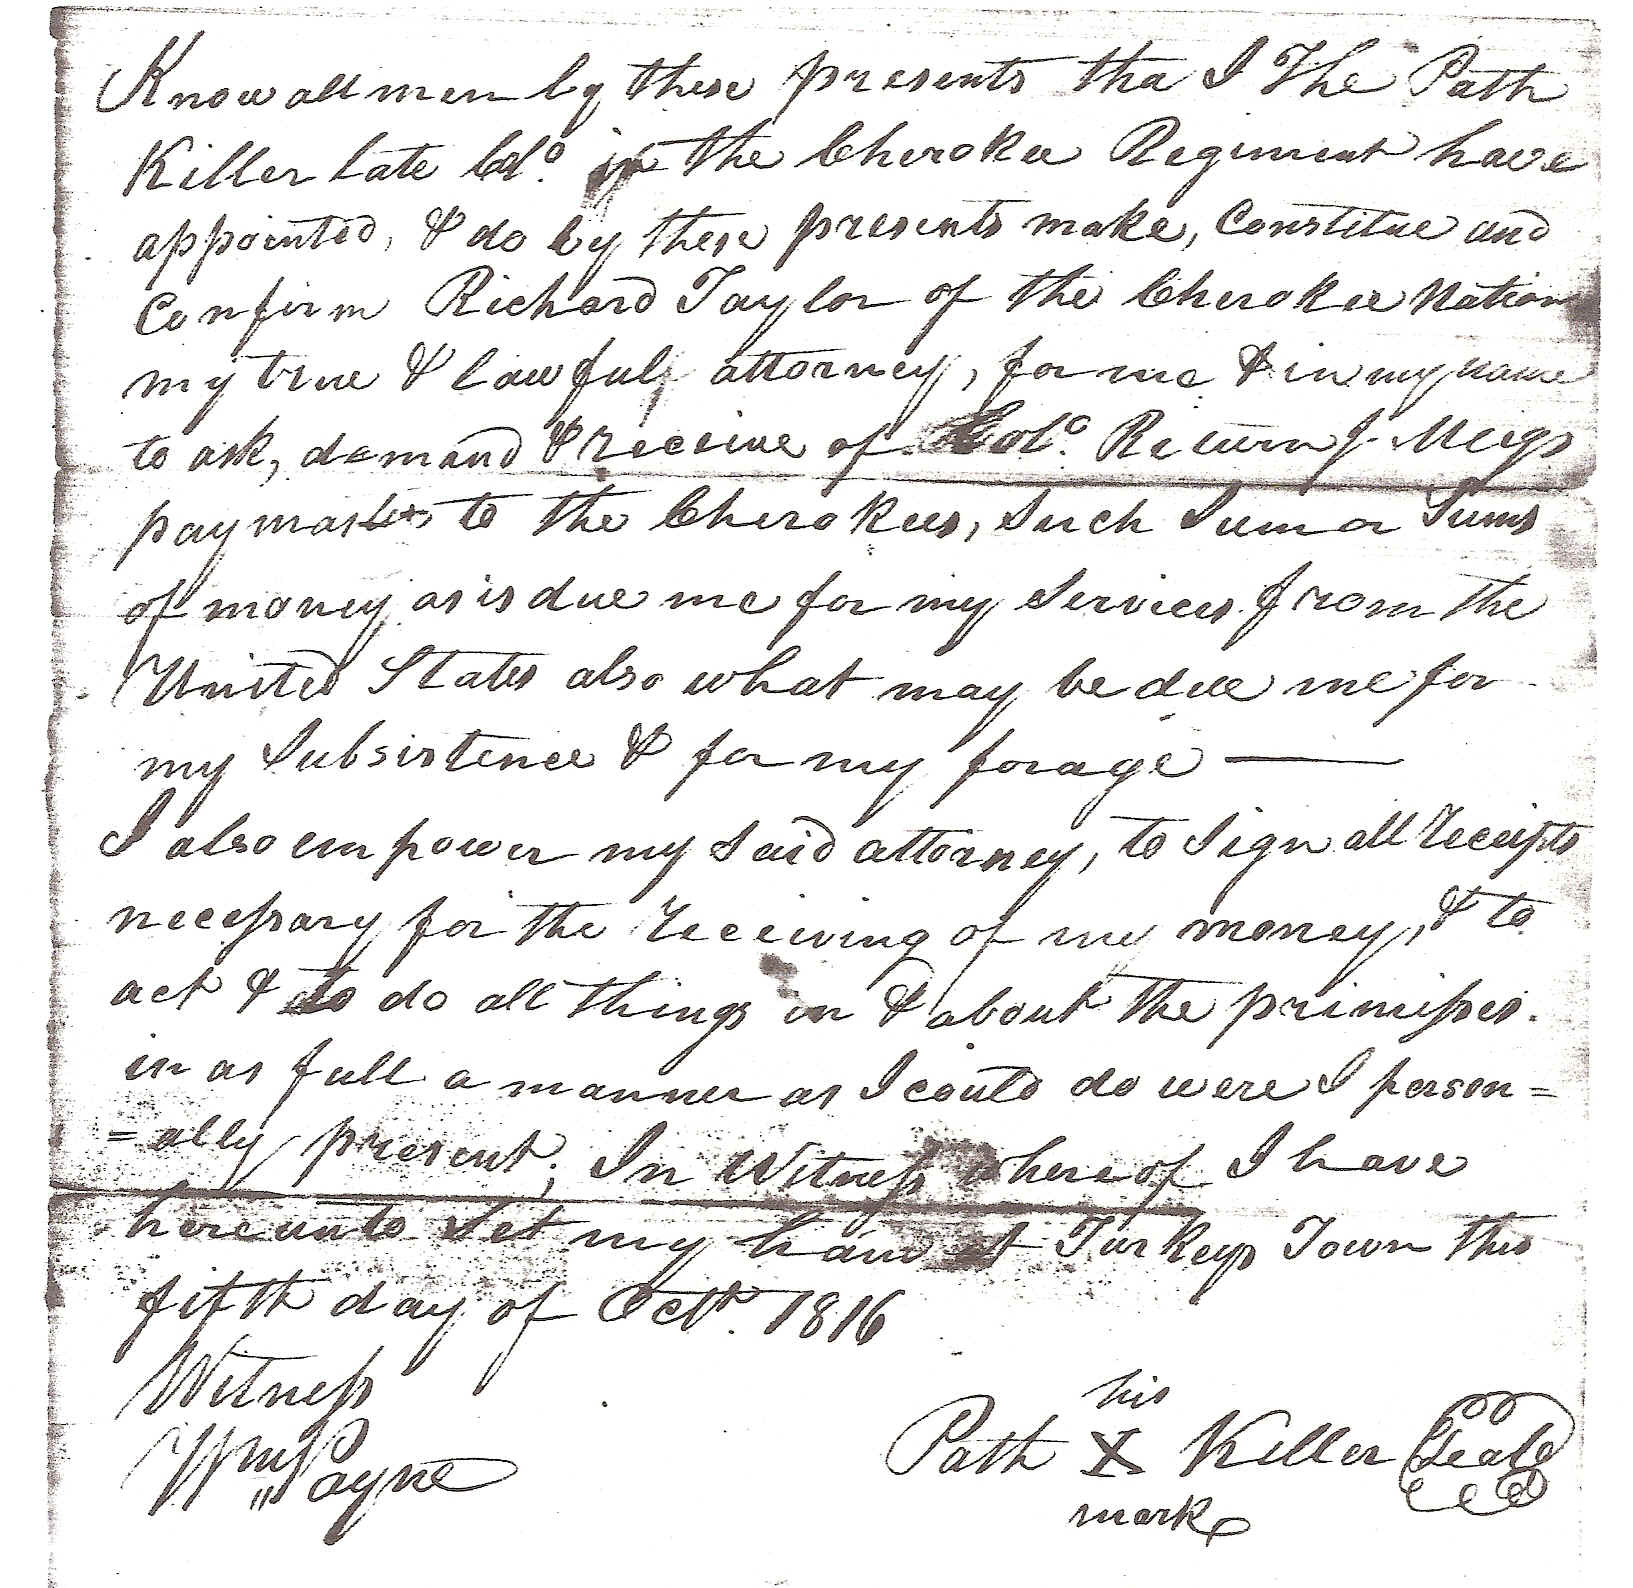 Know all men by these presents tha I The Path
Killer late Colo. in the Cherokee Regiment have
appointed, & do by these presents make, Constitue and
Confirm Richard Taylor of the Cherokee Nation
my true & lawful attorney, for me & in my name
to ask, demand & receive of Colo. Return J. Meigs
paymaster to the Cherokees, Such Sum or Sums
of money as is due me for my Services from the
United States also what may be due me for
my Subsistence & for my forage —
I also empower my Said attorney, to Sign all receipts
necessary for the receiving of my money, & to
act & to do all things in & about the primisses.
in as full a manner as I could do were I person=
=ally present, In Witness whereof I have
hereunto Set my hand at Turkeys Town this
fifth day of Octr. 1816
Witness
Wm Payne
his
Path X Killer Seal
mark